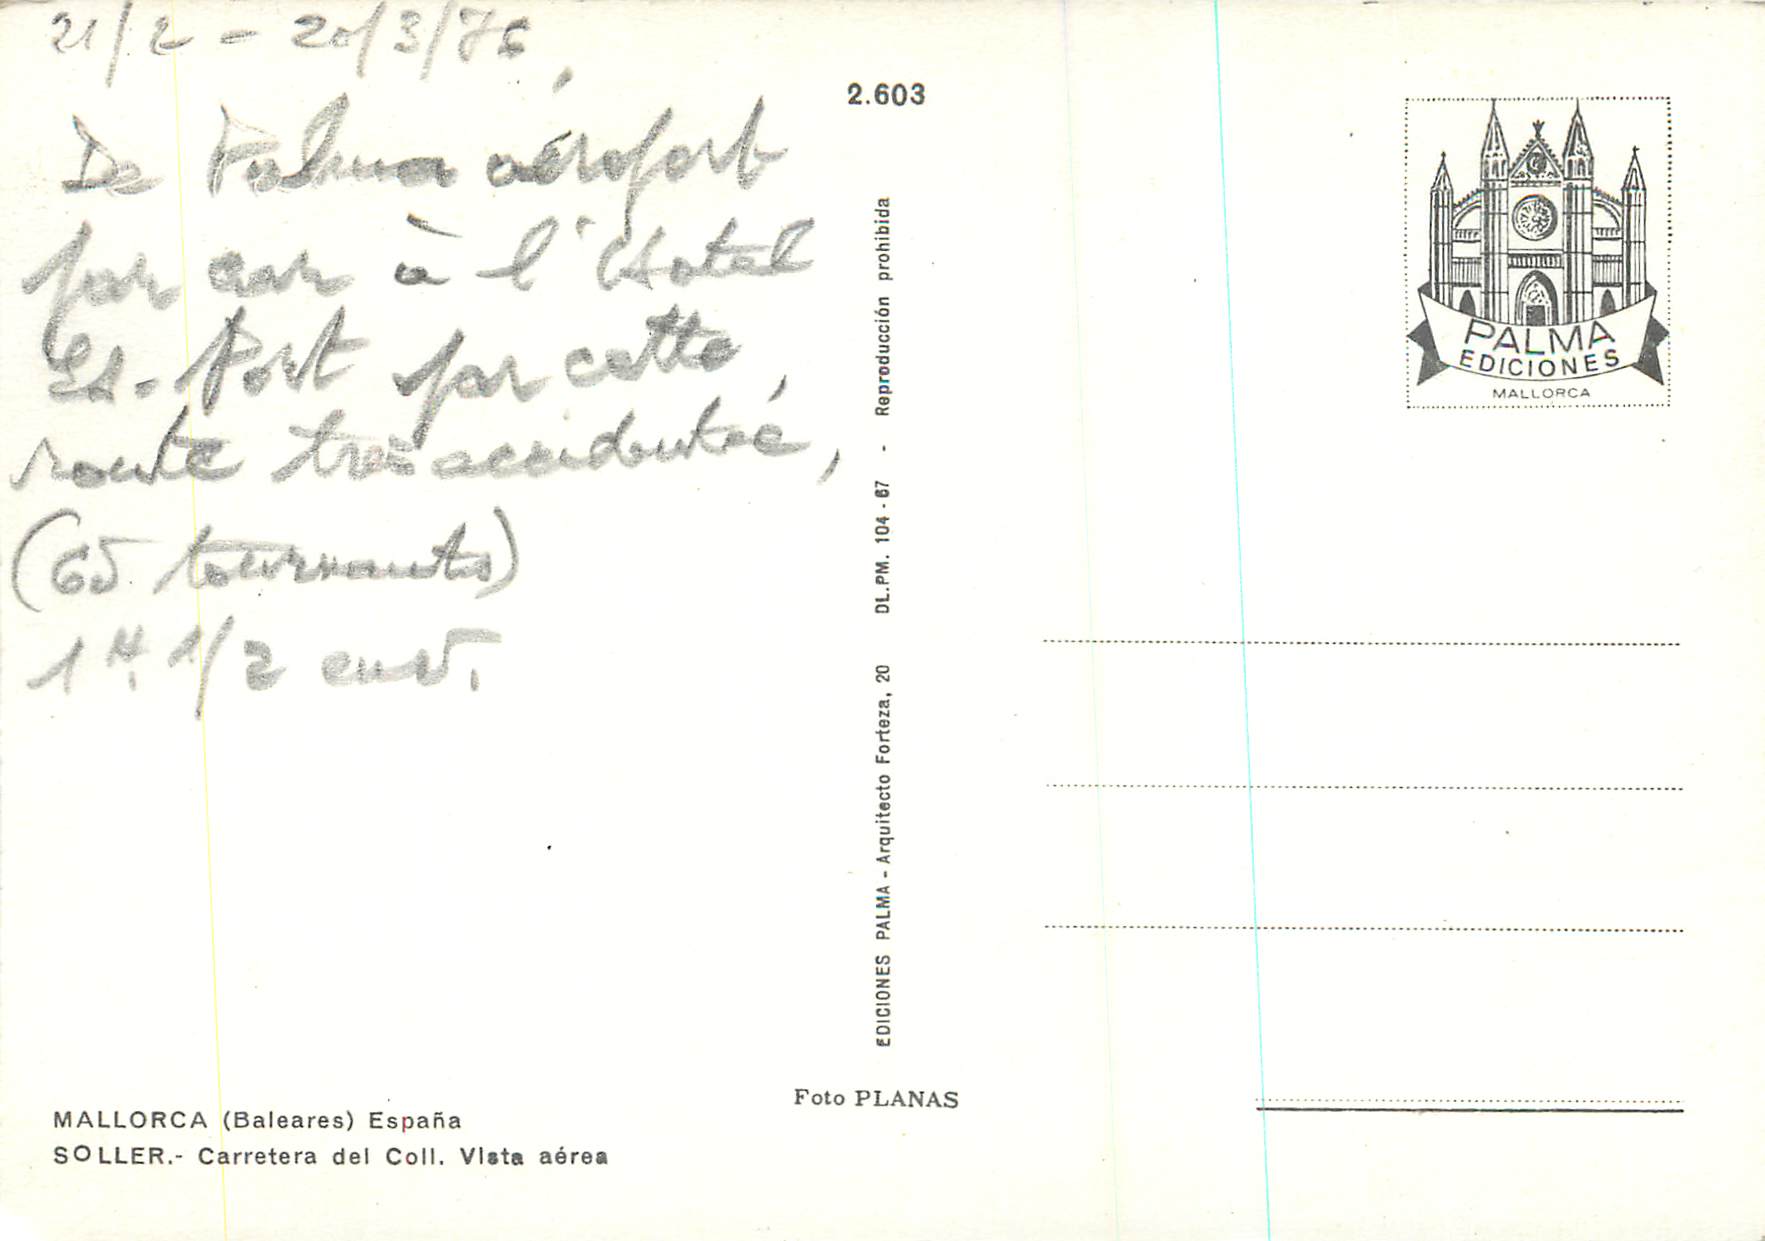 21/2 - 20/3/76
De Palma aéroport
par car à l'Hotel
Es-Port par cette
route très accidentée,
(65 tournants)
1 H. 1/2 env.
2.603
EDICIONES PALMA - Arquitecto Forteza, 20 DL.PM. 104 - 67 - Reproducción prohibida
PALMA
EDICIONES
MALLORCA
Foto PLANAS
MALLORCA (Baleares) España
SOLLER.- Carretera del Coll. Vista aérea